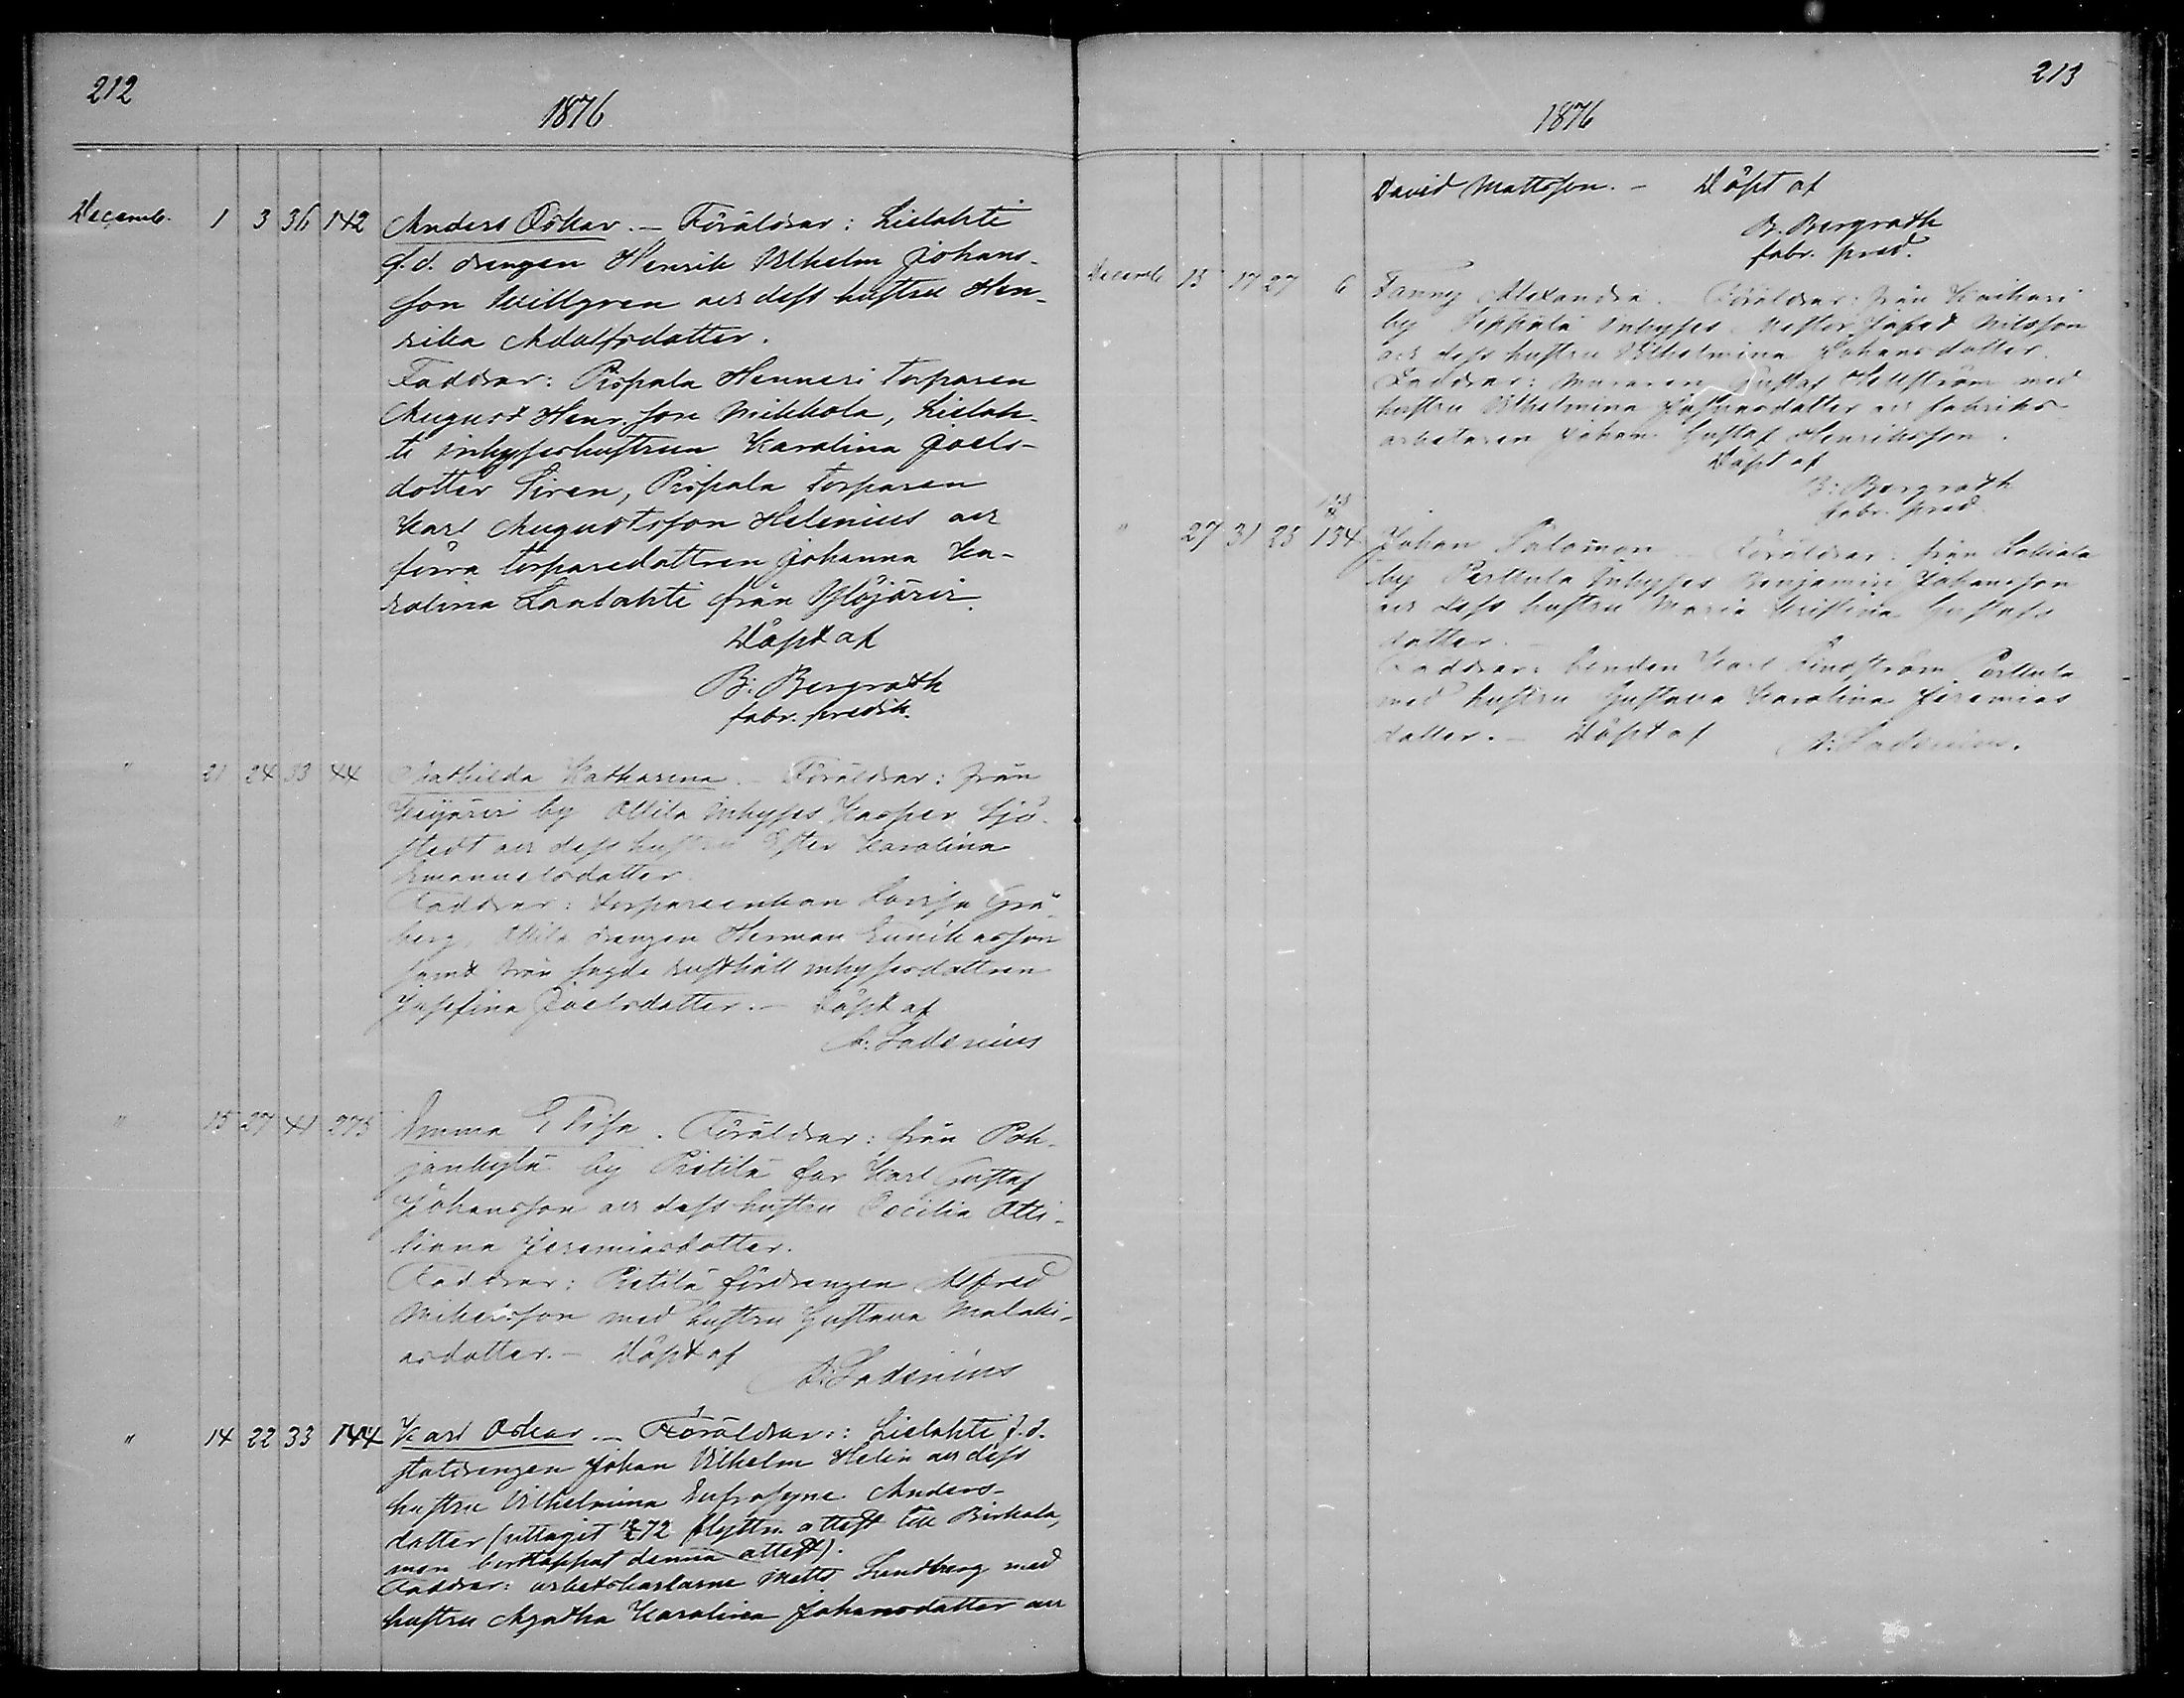 212
1876
Decemb. 1 3 36 142 Anders Oskar. — Föräldrar: Lielahti
f.d. drengen Henrik Vilhelm Johans-
son Killgren och dess hustru Hen-
rika Adolfsdotter.
Faddrar: Pispala Henneri torparen
August Henr.son Mikkola, Lielah-
ti inhyseshustrun Karolina Joels-
dotter Siren, Pispala torparen
Karl Augustsson Helenius och
förra torparedottren Johanna Ka-
rolina Lantahti från Ylöjärvi.
Döpt af
B: Bergroth
fabr. predik.
" 21 24 33 44 Mathilda Katharina. — Föräldrar: från
Keijärvi by Ollila inhyses Kasper Sjö-
stedt och dess hustru Ester Karolina
Emanuelsdotter.
Faddrar: torpareenkan Lovisa Grå-
berg, Ollila drengen Herman Enrikasson
samt från sagde rusthåll inhysesdottren
Josefina Joelsdotter. — Döpt af
A. Ladenius
" 15 27 41 275 Emma Elisa. Föräldrar: från Poh-
jankylä by Pietilä far Karl Gustaf
Johansson och dess hustru Cecilia Otti-
liana Jeremiasdotter.
Faddrar: Pietilä fördrengen Alfred
Mikelsson med hustru Gustava Malaki-
asdotter. — Döpt af
A. Ladenius
" 14 22 33 144 Karl Oskar. — Föräldrar: Lielahti f.d.
statdrengen Johan Vilhelm Helin och dess
hustru Vilhelmina Eufrosyne Anders-
dotter (uttagit 72 flyttn. attest till Birkala,
men borttappat denna attest).
Faddrar: arbetskarlarne Matts Lundberg med
hustru Agatha Karolina Johansdotter och
213
1876
David Mattsson. — Döpt af
B. Bergroth
fabr. pred.
Decemb 13 17 27 6 Fanny Alexandra. — Föräldrar: från Kaihari
by Seppälä inhyses Josef Nilsson
och dess hustru Vilhelmina Johansdotter.
Faddrar: muraren Gustaf Hellström med
hustru Vilhelmina Josefsdotter och fabriks-
arbetaren Johan Gustaf Henriksson.
Döpt af
B: Bergroth
fabr. pred.
" 27 31 23 134 Johan Salomon. — Föräldrar: från Lakiala
by Perttula inhyses Benjamin Johansson
och dess hustru Maria Kristina Gustafs
dotter.
Faddrar: bonden Karl Lindström Perttula
med hustru Gustava Karolina Jeremias
dotter. — Döpt af A: Ladenius.